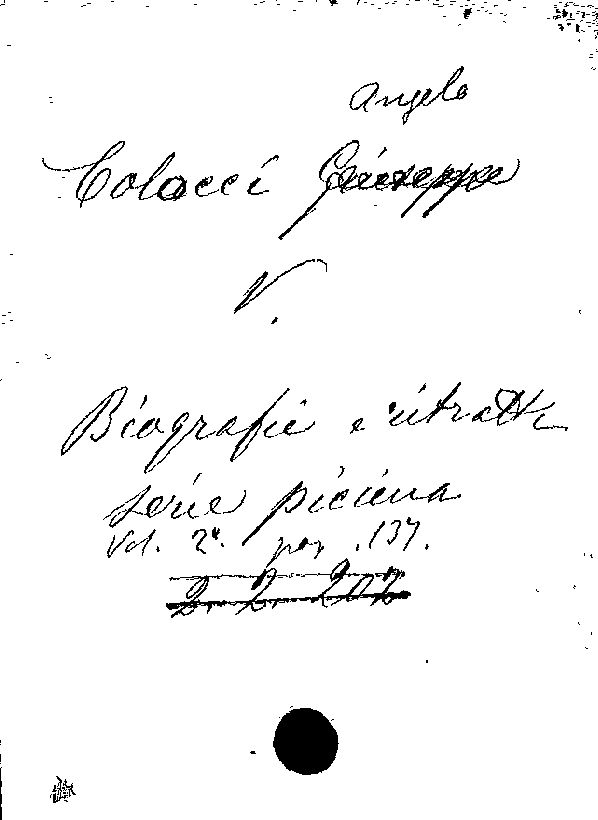 Angelo
Colocci Giuseppe
V.
Biografie e ritratti
serie picena
Vol. 2º. pag. 137.
2. 2. 207